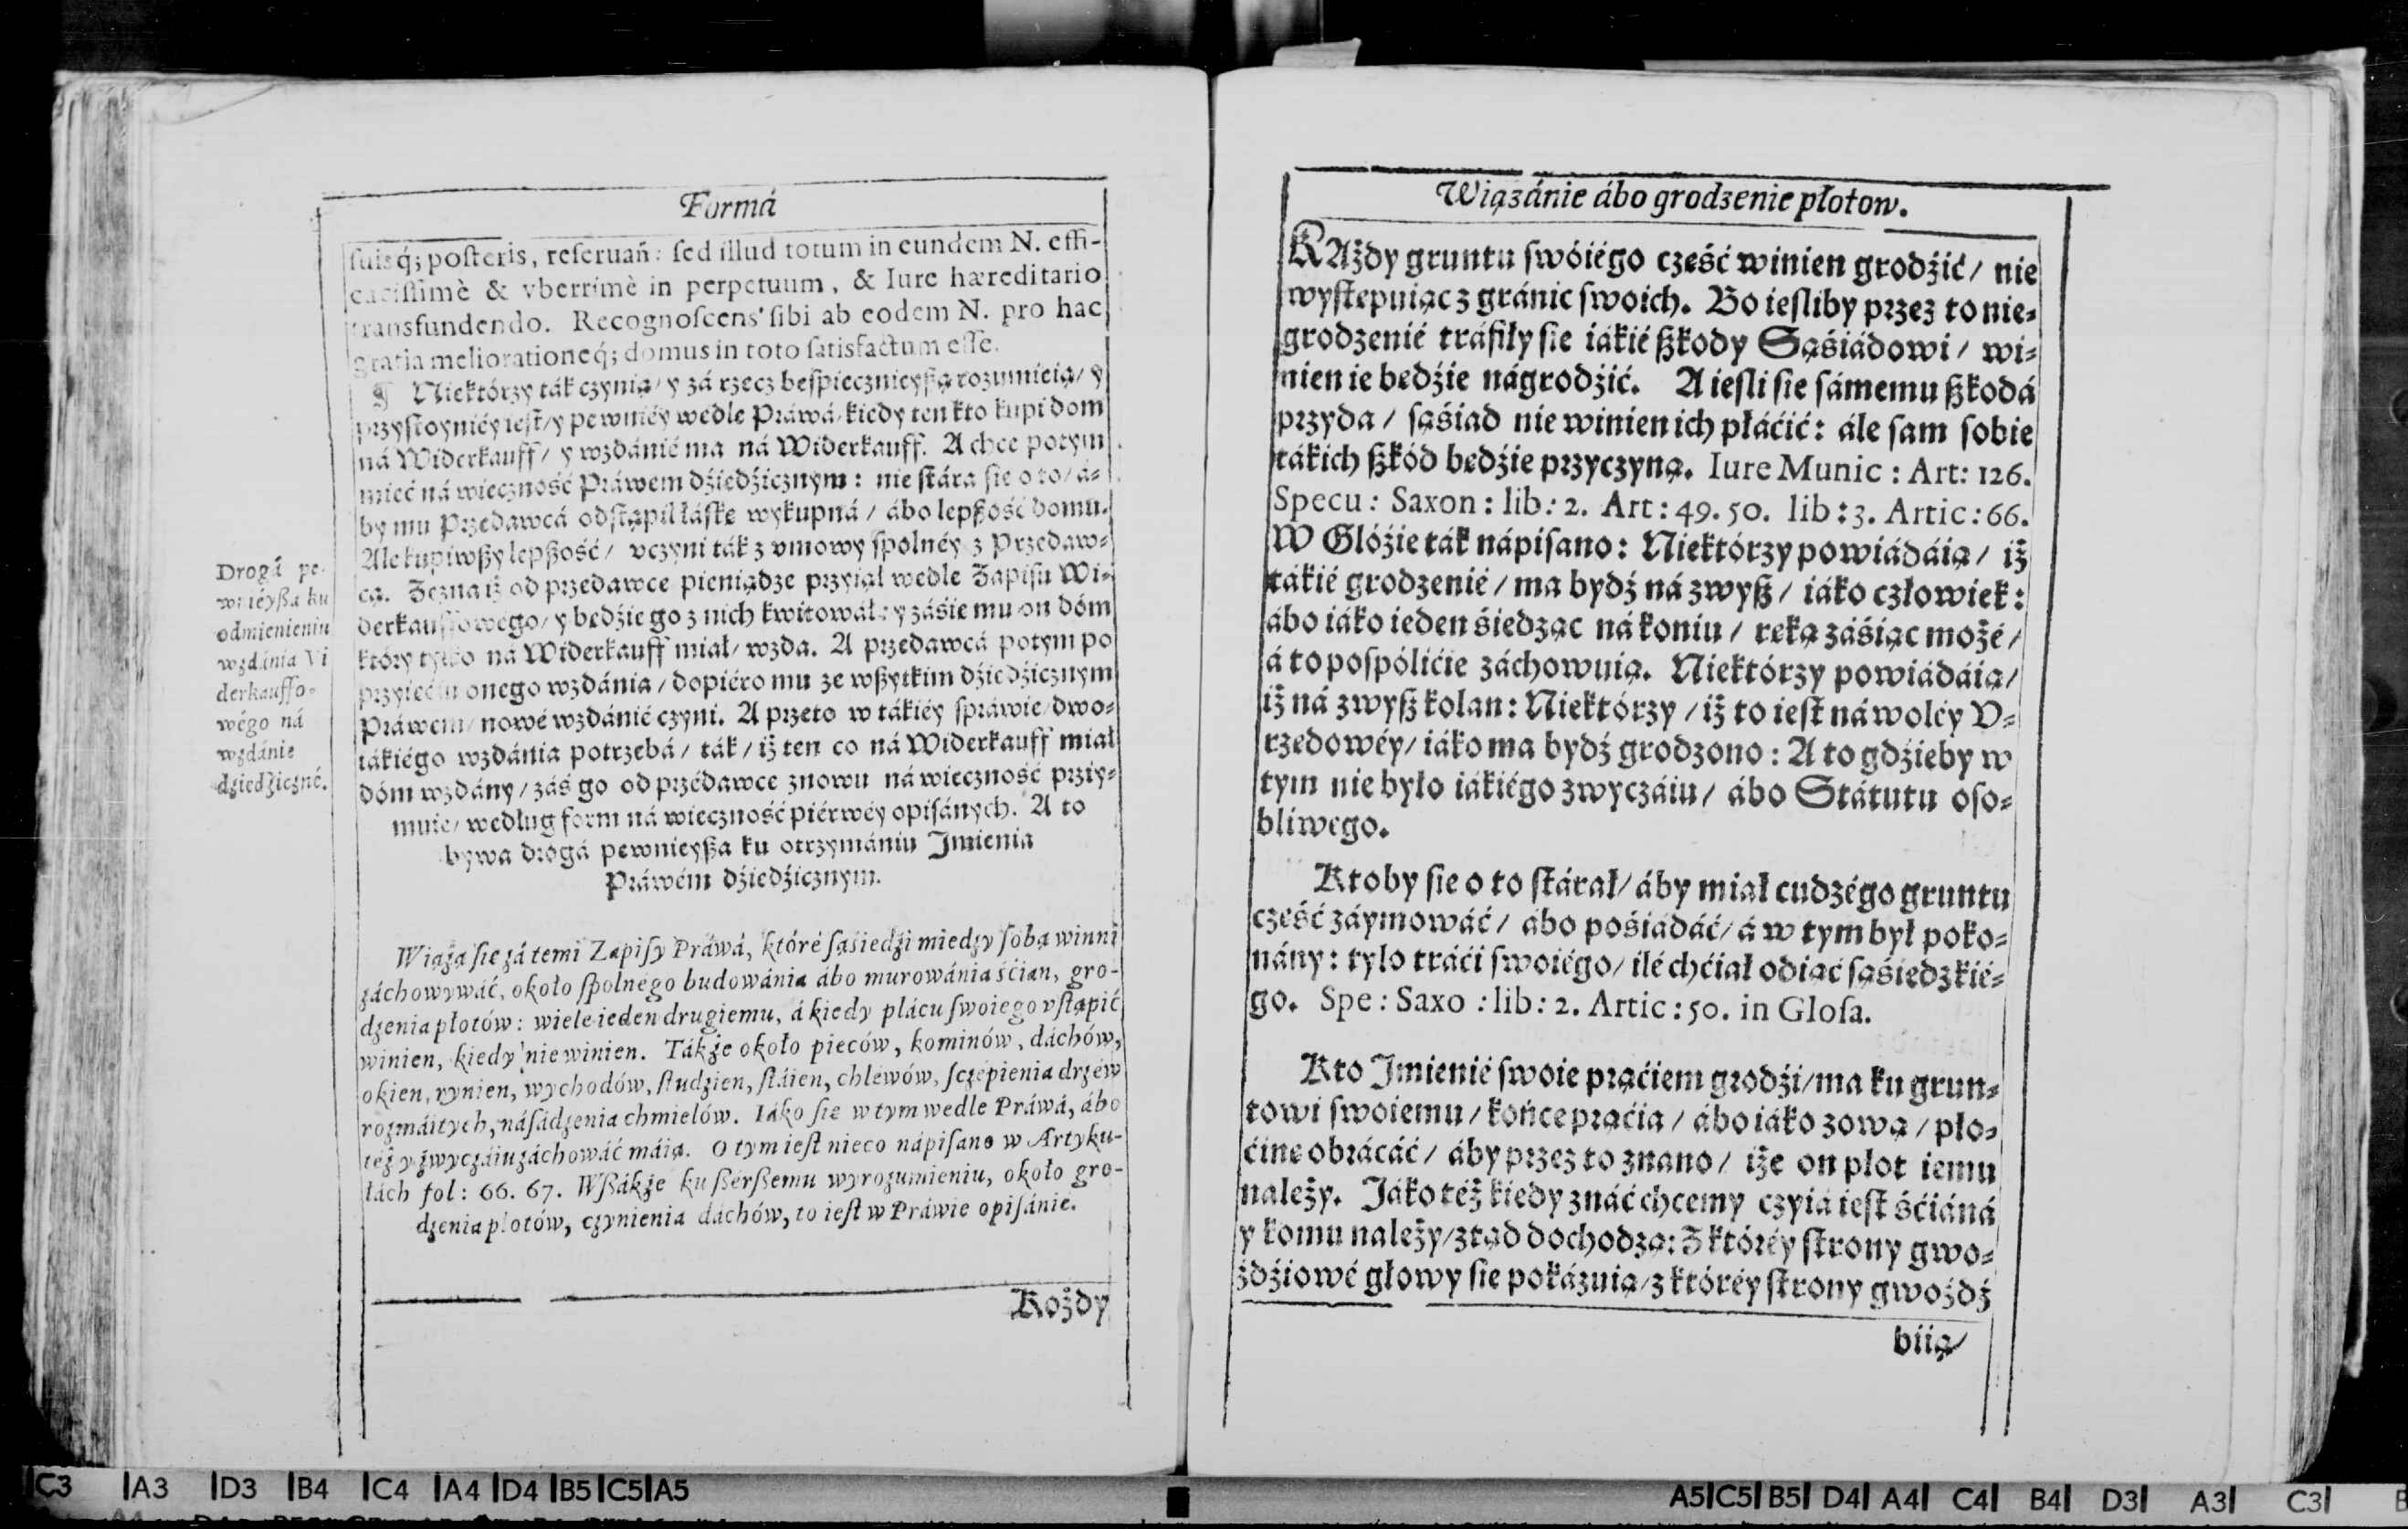 Formá
ſuisq́; poſteris, reſeruań: ſed illud totum in eundem N. effi-
caciſſimè & vberrimè in perpetuum, & Iure hæreditario
transfundendo. Recognoſcens ſibi ab eodem N. pro hac
gratia melioratione q́; domus in toto ſatisfactum eſſe.
¶ Niektórzy ták czynią/ y zá rzecz beſpiecznieyßą rozumieią/ y
przyſtoyniéy ieſt/ y pewniéy wedle Práwá/ kiedy ten kto kupi dom
ná Widerkauff/ y wzdánié ma ná Widerkauff. A chce potym
mieć ná wieczność Práwem dźiedźicznym: nie ſtára ſie o to/ á-
by mu Przedawcá odſtąpił łáſkę wykupná/ ábo lepßość domu.
Ale kupiwßy lepßość/ vczyni ták z vmowy ſpolnéy z Przedaw-
cą. Zezna iż od przedawce pieniądze przyiął wedle Zapiſu Wi-
derkauffowego/ y będźie go z nich kwitował: y záśie mu on dóm
który tylko ná Widerkauff miał/ wzda. A przedawcá potym po
przyięćiu onego wzdánia/ dopiéro mu ze wßytkim dźiedźicznym
Práwem/ nowé wzdánié czyni. A przeto w tákiéy ſpráwie/ dwo-
iákiégo wzdánia potrzebá/ ták/ iż ten co ná Widerkauff miał
dóm wzdány/ záś go od przédawce znowu ná wieczność przy-
muie/ według form ná wieczność piérwéy opiſánych. A to
bywa drogá pewnieyßa ku otrzymániu Jmienia
Práwém dźiedźicznym.
Drogá pe-
wniéyßa ku
odmienieniu
wzdánia Vi
derkauffo-
wégo ná
wzdánie
dźiedźiczné.
Wiążą ſie zá temi Zapiſy Práwá, któré ſąśiedźi miedzy ſobą winni
záchowywáć, około ſpolnégo budowánia ábo murowánia śćian, gro-
dzenia płotów: wiele ieden drugiemu, á kiedy plácu ſwoiego vſtąpić
winien, kiedy nie winien. Tákże około pieców, kominów, dáchów,
okien, rynien, wychodów, ſtudzien, ſtáien, chlewów, ſczepienia drzéw
rozmáitych, náſádzenia chmielów. Iáko ſie w tym wedle Práwá, ábo
téż y zwyczáiu záchowáć máią. O tym ieſt nieco nápiſano w Artyku-
łách fol: 66. 67. Wßákże ku ßerßemu wyrozumieniu, około gro-
dzenia płotów, czynienia dáchów, to ieſt w Práwie opiſánie.
Kożdy
Wiązánie ábo grodzenie płotow.
KAżdy gruntu ſwóiégo cześć winien grodźić/ nie
wyſtepuiąc z gránic ſwoich. Bo ieſliby przez to nie-
grodzenié tráfiły ſie iákié ßkody Sąśiádowi/ wi-
nien ie bedźie nágrodźić. A ieſli ſie ſámemu ßkodá
przyda/ ſąśiad nie winien ich płáćić: ále ſam ſobie
tákich ßkód bedźie przyczyną. Iure Munic: Art: 126.
Specu: Saxon: lib: 2. Art: 49. 50. lib: 3. Artic: 66.
W Glóźie ták nápiſano: Niektórzy powiádáią/ iż
tákié grodzenié/ ma bydź ná zwyß/ iáko człowiek:
ábo iáko ieden śiedząc ná koniu/ ręką záśiąc możé/
á to poſpólićie záchowuią. Niektórzy powiádáią/
iż ná zwyß kolan: Niektórzy/ iż to ieſt ná woléy V-
rzedowéy/ iáko ma bydź grodzono: A to gdźieby w
tym nie było iákiégo zwyczáiu/ ábo Státutu oſo-
bliwego.
Ktoby ſie o to ſtárał/ áby miał cudzégo gruntu
cześć záymowáć/ ábo pośiádáć/ á w tym był poko-
nány: tylo tráći ſwoiégo/ ilé chćiał odiąć ſąśiedzkié-
go. Spe: Saxo: lib: 2. Artic: 50. in Gloſa.
Kto Jmienié ſwoie prąćiem grodźi/ ma ku grun-
towi ſwoiemu/ końce prąćia/ ábo iáko zową/ pło-
ćine obrácáć/ áby przez to znano/ iże on płot iemu
należy. Jáko téż kiedy znáć chcemy czyiá ieſt śćiáná
y komu należy/ ztąd dochodzą: Z któréy ſtrony gwo-
żdźiowé głowy ſie pokázuią/ z któréy ſtrony gwoźdź
biią/
C3 A3 D3 B4 C4 A4 D4 B5 C5 A5
A5 C5 B5 D4 A4 C4 B4 D3 A3 C3